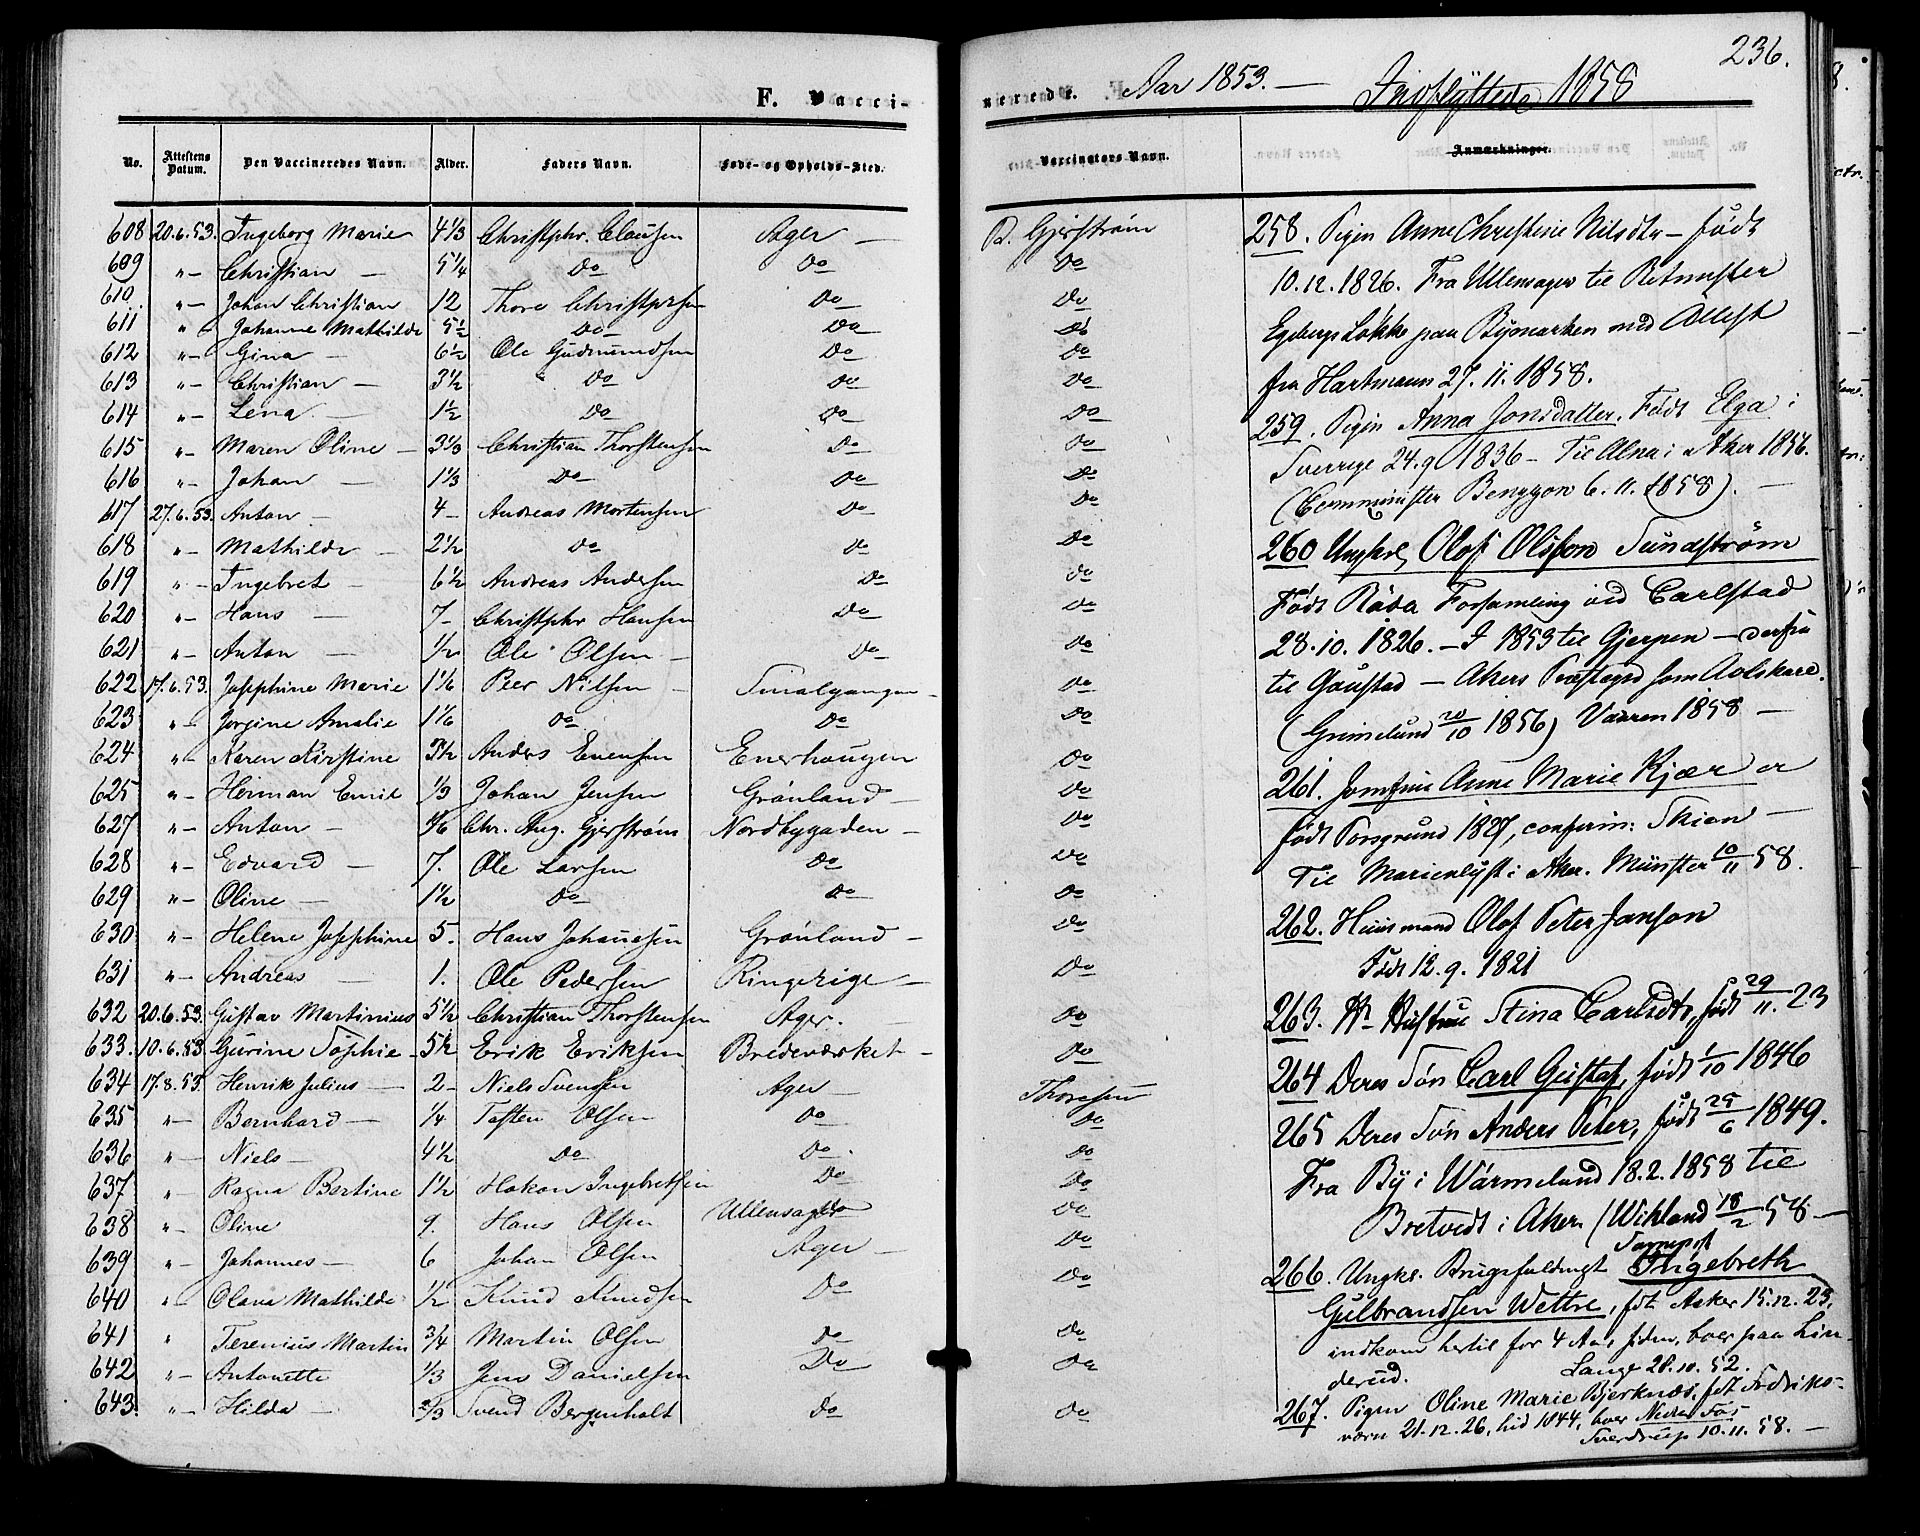 236.
F. Vacci-
nerede. Aar 1853. — Indflyttede 1858
No. Attestens Datum. Den Vaccineredes Navn. Alder. Faders Navn. Føde- og Opholds-Sted. Vaccinators Navn. Anmærkninger.
608 20.6.53. Ingeborg Marie 4 1/3 Christphr. Clausen Ager — B. Gjerstrøm
609 "— Christian — 5 1/4 Do Do Do
610 "— Johan Christian 12 Thore Christphersen Do Do
611 " Johanne Mathilde 5 1/2 Do Do Do
612 "— Gina — 6 1/2 Ole Gudmundsen Do Do
613 "— Christian — 3 1/2 Do Do Do
614 "— Lena — 1 1/2 Do Do Do
615 "— Maren Oline — 3 1/3 Christian Thorstensen Do Do
616 "— Johan — 1 1/3 Do Do Do
617 27.6.53. Anton — 4 — Andreas Mortensen Do Do
618 "— Mathilde — 2 1/2 Do Do Do
619 "— Ingebret — 6 1/2 Andreas Andersen Do Do
620 "— Hans — 7 — Christphr Hansen Do Do
621 "— Anton — 1/2 Ole Olsen — Do Do
622 17.6.53. Josephine Marie 1 1/6 Peer Nilsen — Smalgangen — Do
623 "— Jorgine Amalie 1 1/6 Do Do Do
624 "— Karen Kirstine 3 1/2 Anders Evensen Enerhougen Do
625 "— Herman Emil 1/3 Johan Jensen Grønland — Do
627 "— Anton — Chr. Aug. Gjerstrøm Nordbygaden — Do
628 "— Edvard — 7. Ole Larsen Do Do
629 "— Oline — 1 1/2 Do Do Do
630 "— Helene Josephine 5. Hans Johannesen Grønland — Do
631 "— Andreas — 1. Ole Pedersen Ringerige — Do
632 20.6.53. Gustav Martinius 5 1/2 Christian Thorstensen Ager. Do
633. 10.6.53. Gurine Sophie — 5 1/2 Erik Eriksen Bredeværket — Do
634 17.8.53. Henrik Julius — 2 — Niels Svendsen Ager — Thoresen
635 "— Bernhard — 1/4 Tosten Olsen Do Do
636 "— Niels — 4 1/2 Do Do Do
637 "— Ragna Bertine 1 1/2 Hakon Ingebretsen Do Do
638 "— Oline 9. Hans Olsen Ullensager Do
639 "— Johannes — 6 Johan Olsen Ager — Do
640 "— Olava Mathilde 1/2 Knud Knudsen Do Do
641 " Terenius Martin 3/4 Martin Olsen Do Do
642 "— Antonette 1/3 Jens Danielsen Do Do
643. "— Hilda — 2/3 Svend Bergenholt Do Do
258. Pigen Anne Christine Nilsdtr — født
10.12.1826. Fra Ullensager til Retmester
Egebergs Løkke paa Bymarken med Attest
fra Hartmann 27.11.1858.
259. Pigen Anna Jonsdatter. Født Elga i
Sverrige 24.9 1836 — Til Alna i Aker 1856.
(Comminister Bengzon 6.11.1858). —
260 Ungkrl Olof Olsson Sundstrøm
Født Råda Forsamling ved Carlstad
28.10.1826. — I 1853 til Gjerpen — derfra
til Gaustad — Akers Præstegd som Avlskarl.
(Grimelund 20/10 1856) Vaaren 1858 —
261. Jomfrue Anne Marie Kjær er
født Porsgrund 1827, confirm: Skien —
Til Marienlyst i Aker. Münster 10/11 58.
262. Huusmand Olof Peter Janson
Født 12.9.1821
263. Hs Hustrue Stina Carlsdtr, født 29/11.23
264 Deres Søn Carl Gustaf, født 1/10 1846
265 Deres Søn Anders Peter, født 25/6 1849.
Fra By i Wärmeland 18.2.1858 til
Bretvedt i Aker (Wikland 18/2 58 —
266. Ungkl. Brugsfuldmgt Ingebreth
Gulbrandsen Wettre, fdt Asker 15.12.23,
indkom hertil for 4 Aar siden, boer paa Lin-
derud. Lange 28.10.52.
267. Pigen Oline Marie Bjerknæs, fdt Fredriks-
værn 21.12.26, hid 1844, boer Nedre Fos
Sverdrup 10.11.58. —